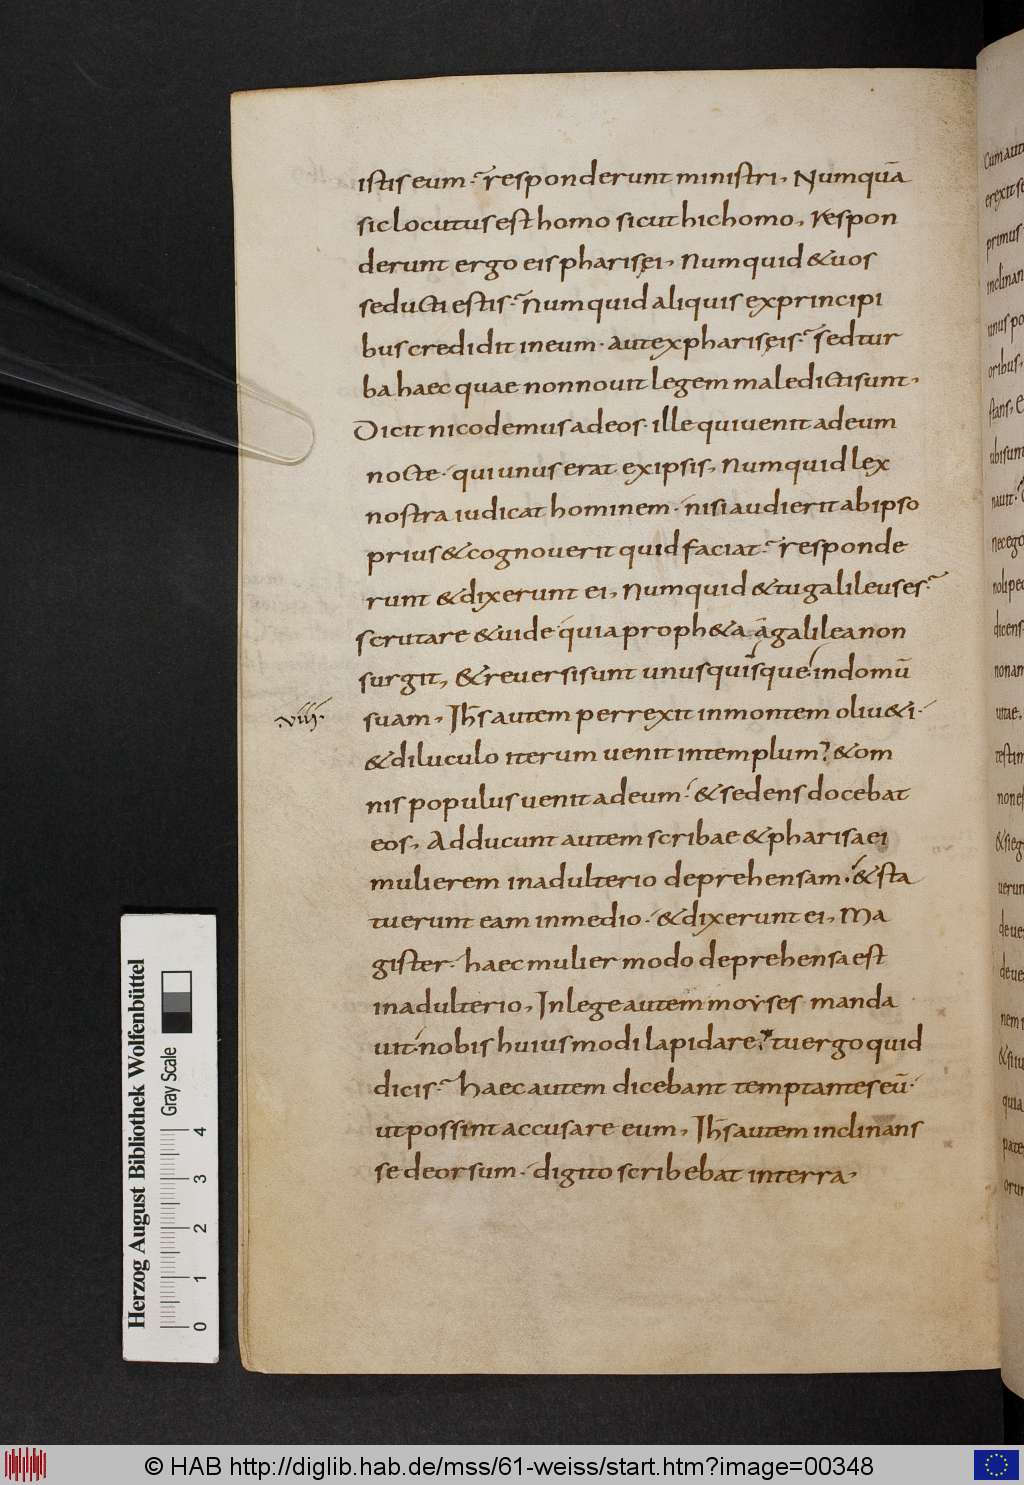 istis eum. responderunt ministri, Numquā
sic locutus est homo sicut hic homo, respon
derunt ergo eis pharisęi, Numquid & uos
seducti estis. Numquid aliquis ex principi
bus credidit in eum. aut ex pharisęis. sed tur
ba haec quae non nouit legem maledicti sunt,
Dicit nicodemus ad eos. ille qui uenit ad eum
nocte. qui unus erat ex ipsis, Numquid lex
nostra iudicat hominem. nisi audierit ab ipso
prius & cognouerit quid faciat. responde
runt & dixerunt ei, Numquid & tu galileus es.
scrutare & uide quia proph&a a galilea non
surgit, & reuersi sunt unusquisque in domū
VIIII. suam, Ihs autem perrexit in montem oliu&i.
& diluculo iterum uenit in templum? & om
nis populus uenit ad eum. & sedens docebat
eos, Adducunt autem scribae & pharisaei
mulierem in adulterio deprehensam. & sta
tuerunt eam in medio. & dixerunt ei, Ma
gister. haec mulier modo deprehensa est
in adulterio, In lege autem moyses manda
uit nobis huiusmodi lapidare? tu ergo quid
dicis. haec autem dicebant temptantes eū.
ut possint accusare eum, Ihs autem inclinans
se deorsum. digito scribebat in terra,
Herzog August Bibliothek Wolfenbüttel
Gray Scale
0 1 2 3 4
© HAB http://diglib.hab.de/mss/61-weiss/start.htm?image=00348